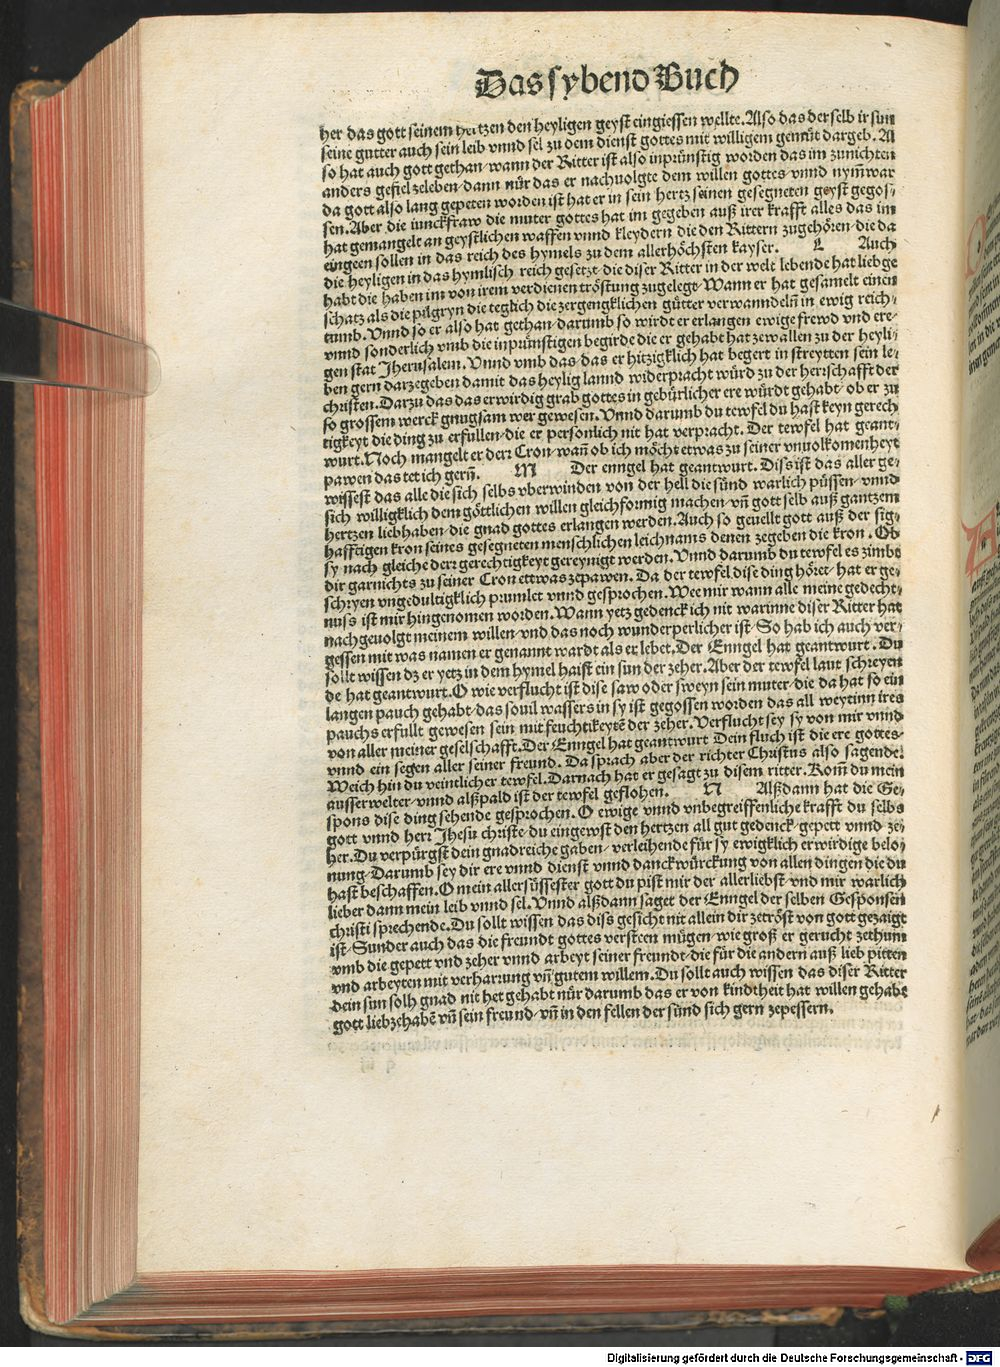 Das sybend Buch
her das gott seinem hertzen den heyligen geyst eingiessen wellte. Also das der selb ir sun
seine gutter auch sein leib vnnd sel zu dem dienst gottes mit willigem gemüt dargeb. Al
so hat auch gott gethan/ wann der Ritter ist also inprünstig worden das im zunichten
anders gefiel zeleben/ dann nür das er nachuolgte dem willen gottes/ vnnd nym̃war
da gott also lang gepeten worden ist hat er in sein hertz seinen gesegneten geyst gegos/
sen. Aber die iunckfraw die muter gottes hat im gegeben auß irer krafft alles das im
hat gemangelt an geystlichen waffen vnnd kleydern die den Rittern zugehören/ die da
eingeen sollen in das reich des hymels zu dem allerhöchsten kayser. L Auch
die heyligen in das hymlisch reich gesetzt/ die diser Ritter in der welt lebende hat liebge
habt die haben im von irem verdienen tröstung zugelegt/ Wann er hat gesamelt einen
schatz als die pilgryn die teglich die zergengklichen gütter verwanndeln̄ in ewig reich/
tumb. Vnnd so er also hat gethan/ darumb so wirdt er erlangen ewige frewd vnd ere/
vnnd sonderlich vmb die inprünstigen begirde die er gehabt hat zewallen zu der heyli/
gen stat Jherusalem. Vnnd vmb das/ das er hitzigklich hat begert in streytten sein le/
ben gern darzegeben damit das heylig lannd widerpracht würd zu der herrschafft der
christen. Darzu das das erwirdig grab gottes in gebürlicher ere würdt gehabt/ ob er zu
so grossem werck gnugsam wer gewesen. Vnnd darumb du tewfel du hast keyn gerech
tigkeyt die ding zu erfullen/ die er persönlich nit hat verpracht. Der tewfel hat geant/
wurt. Noch mangelt er derr Cron/ wañ ob ich möcht etwas zu seiner vnuolkomenheyt
pawen das tet ich gern̄. M Der enngel hat geantwurt. Diss ist das aller ge/
wissest das alle die sich selbs vberwinden von der hell die sünd warlich püssen/ vnnd
sich willigklich dem göttlichen willen gleichformig machen/ vn̄ gott selb auß gantzem
hertzen liebhaben/ die gnad gottes erlangen werden. Auch so geuellt gott auß der sig/
hafftigen kron seines gesegneten menschlichen leichnams denen zegeben die kron. Ob
sy nach gleiche derr gerechtigkeyt gereynigt werden. Vnnd darumb du tewfel es zimbt
dir garnichts zu seiner Cron ettwas zepawen. Da der tewfel dise ding höret/ hat er ge/
schryen vngedultigklich prumlet vnnd gesprochen. Wee mir wann alle meine gedecht/
nuss ist mir hingenomen worden. Wann yetz gedenck ich nit warinne diser Ritter hat
nachgeuolgt meinem willen/ vnd das noch wunderperlicher ist/ So hab ich auch ver/
gessen mit was namen er genannt wardt als er lebet. Der Enngel hat geantwurt. Du
sollt wissen dz er yetz in dem hymel haist ein sun der zeher. Aber der tewfel laut schreyen
de hat geantwurt. O wie verflucht ist dise saw oder sweyn sein muter/ die da hat so ein
langen pauch gehabt/ das souil wassers in sy ist gegossen worden das all weytinn ires
pauchs erfullt gewesen sein mit feuchtikeytẽ der zeher. Verflucht sey sy von mir vnnd
von aller meiner geselschafft. Der Enngel hat geantwurt Dein fluch ist die ere gottes/
vnnd ein segen aller seiner freund. Da sprach aber der richter Christus also sagende.
Weich hin du veintlicher tewfel. Darnach hat er gesagt zu disem ritter. Kom̃ du mein
ausserwelter/ vnnd alßpald ist der tewfel geflohen. N Alßdann hat die Ge/
spons dise ding sehende gesprochen. O ewige vnnd vnbegreiffenliche krafft du selbs
gott vnnd herr Jhesu christe/ du eingewst den hertzen all gut gedenck/ gepett vnnd ze/
her. Du verpürgst dein gnadreiche gaben/ verleihende für sy ewigklich erwirdige belo/
nung/ Darumb sey dir ere vnnd dienst vnnd danckwürckung von allen dingen die du
hast beschaffen. O mein allersüssester gott du pist mir der allerliebst/ vnd mir warlich
lieber dann mein leib vnnd sel. Vnnd alßdann saget der Enngel der selben Gesponsen
christi sprechende. Du sollt wissen das diss gesicht nit allein dir zetröst von gott gezaigt
ist/ Sunder auch das die freundt gottes versteen mügen/ wie groß er gerucht zethun
vmb die gepett vnd zeher vnnd arbeyt seiner freundt/ die für die andern auß lieb pitten
vnd arbeyten mit verharrung vn̄ gutem willem. Du sollt auch wissen das diser Ritter
dein sun solh gnad nit het gehabt nür darumb das er von kindtheit hat willen gehabt
gott liebzehabẽ vn̄ sein freund/ vn̄ in den fellen der sünd sich gern zepessern.
Digitalisierung gefördert durch die Deutsche Forschungsgemeinschaft - DFG